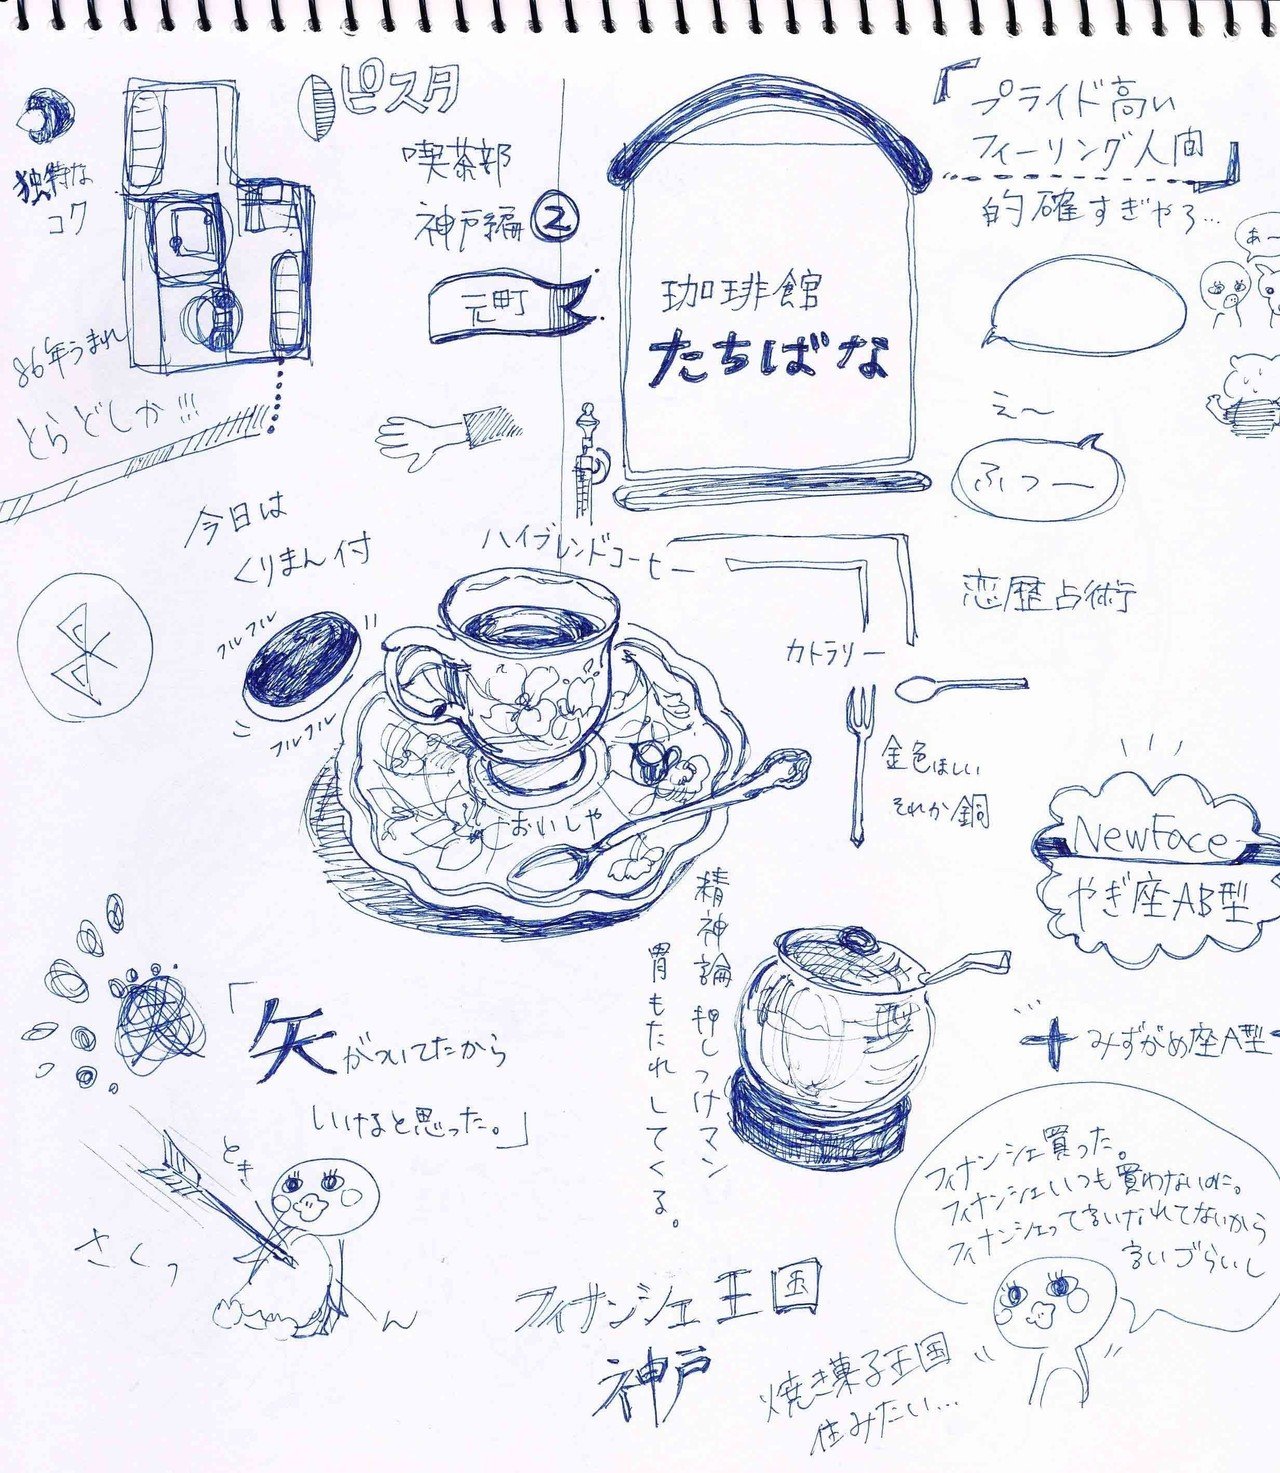 ピスタ
喫茶部
神戸編②
元町
独特な
コク
86年うまれ
とらどしか!!!
珈琲館
たちばな
「プライド高い
フィーリング人間」
的確すぎやろ…
あー
えー
ふつー
恋歴占術
今日は
くりまん付
フルフル
フルフル
ハイブレンドコーヒー
カトラリー
金色ほしい
それか銅
おいしゃ
NewFace
やぎ座AB型
+みずがめ座A型
精神論押しつけマン
胃もたれしてくる。
「矢がついてたから
いけると思った。」
とき
さくっ
ん
フィナンシェ買った。
フィナンシェいつも買わないのに。
フィナンシェって言いなれてないから
言いづらいし
フィナンシェ王国
神戸
焼き菓子王国
住みたい…